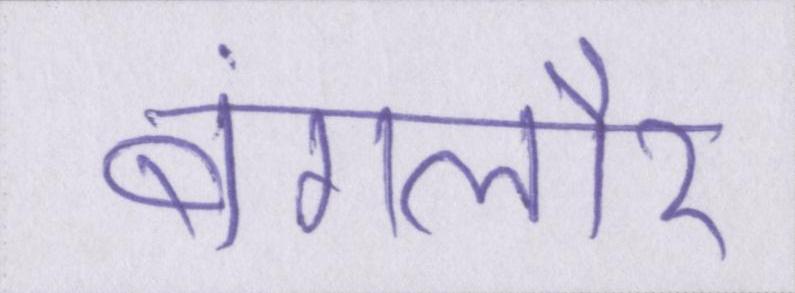 बंगलौर